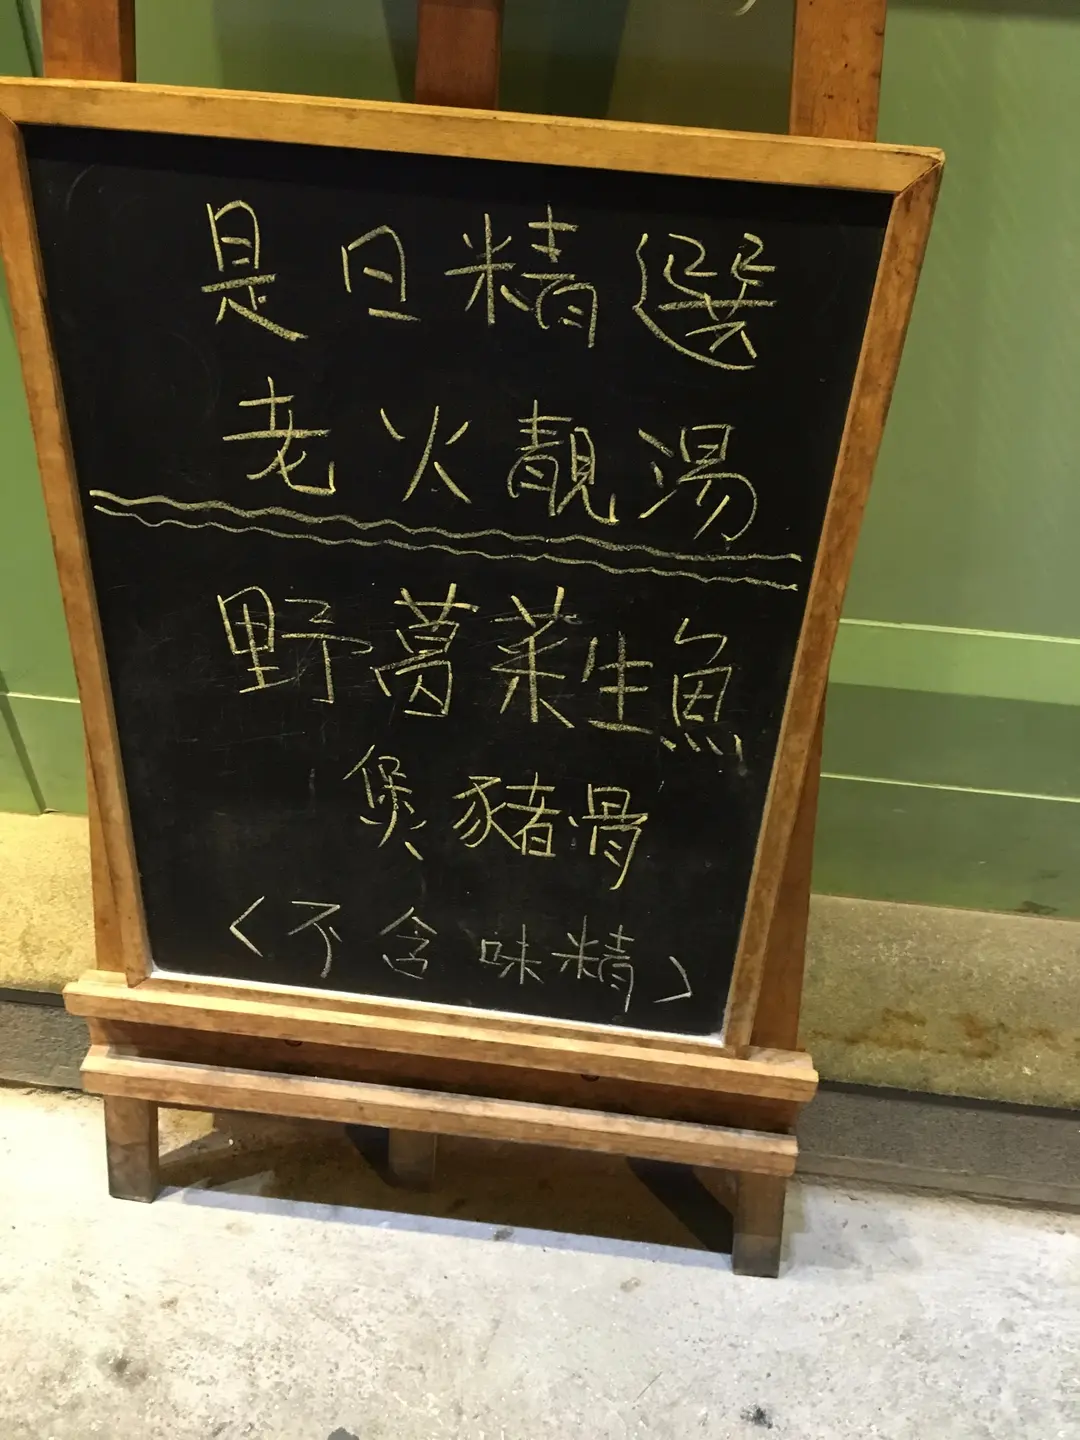 是日精選
老火靚湯
野葛菜生魚
煲豬骨
<不含味精>